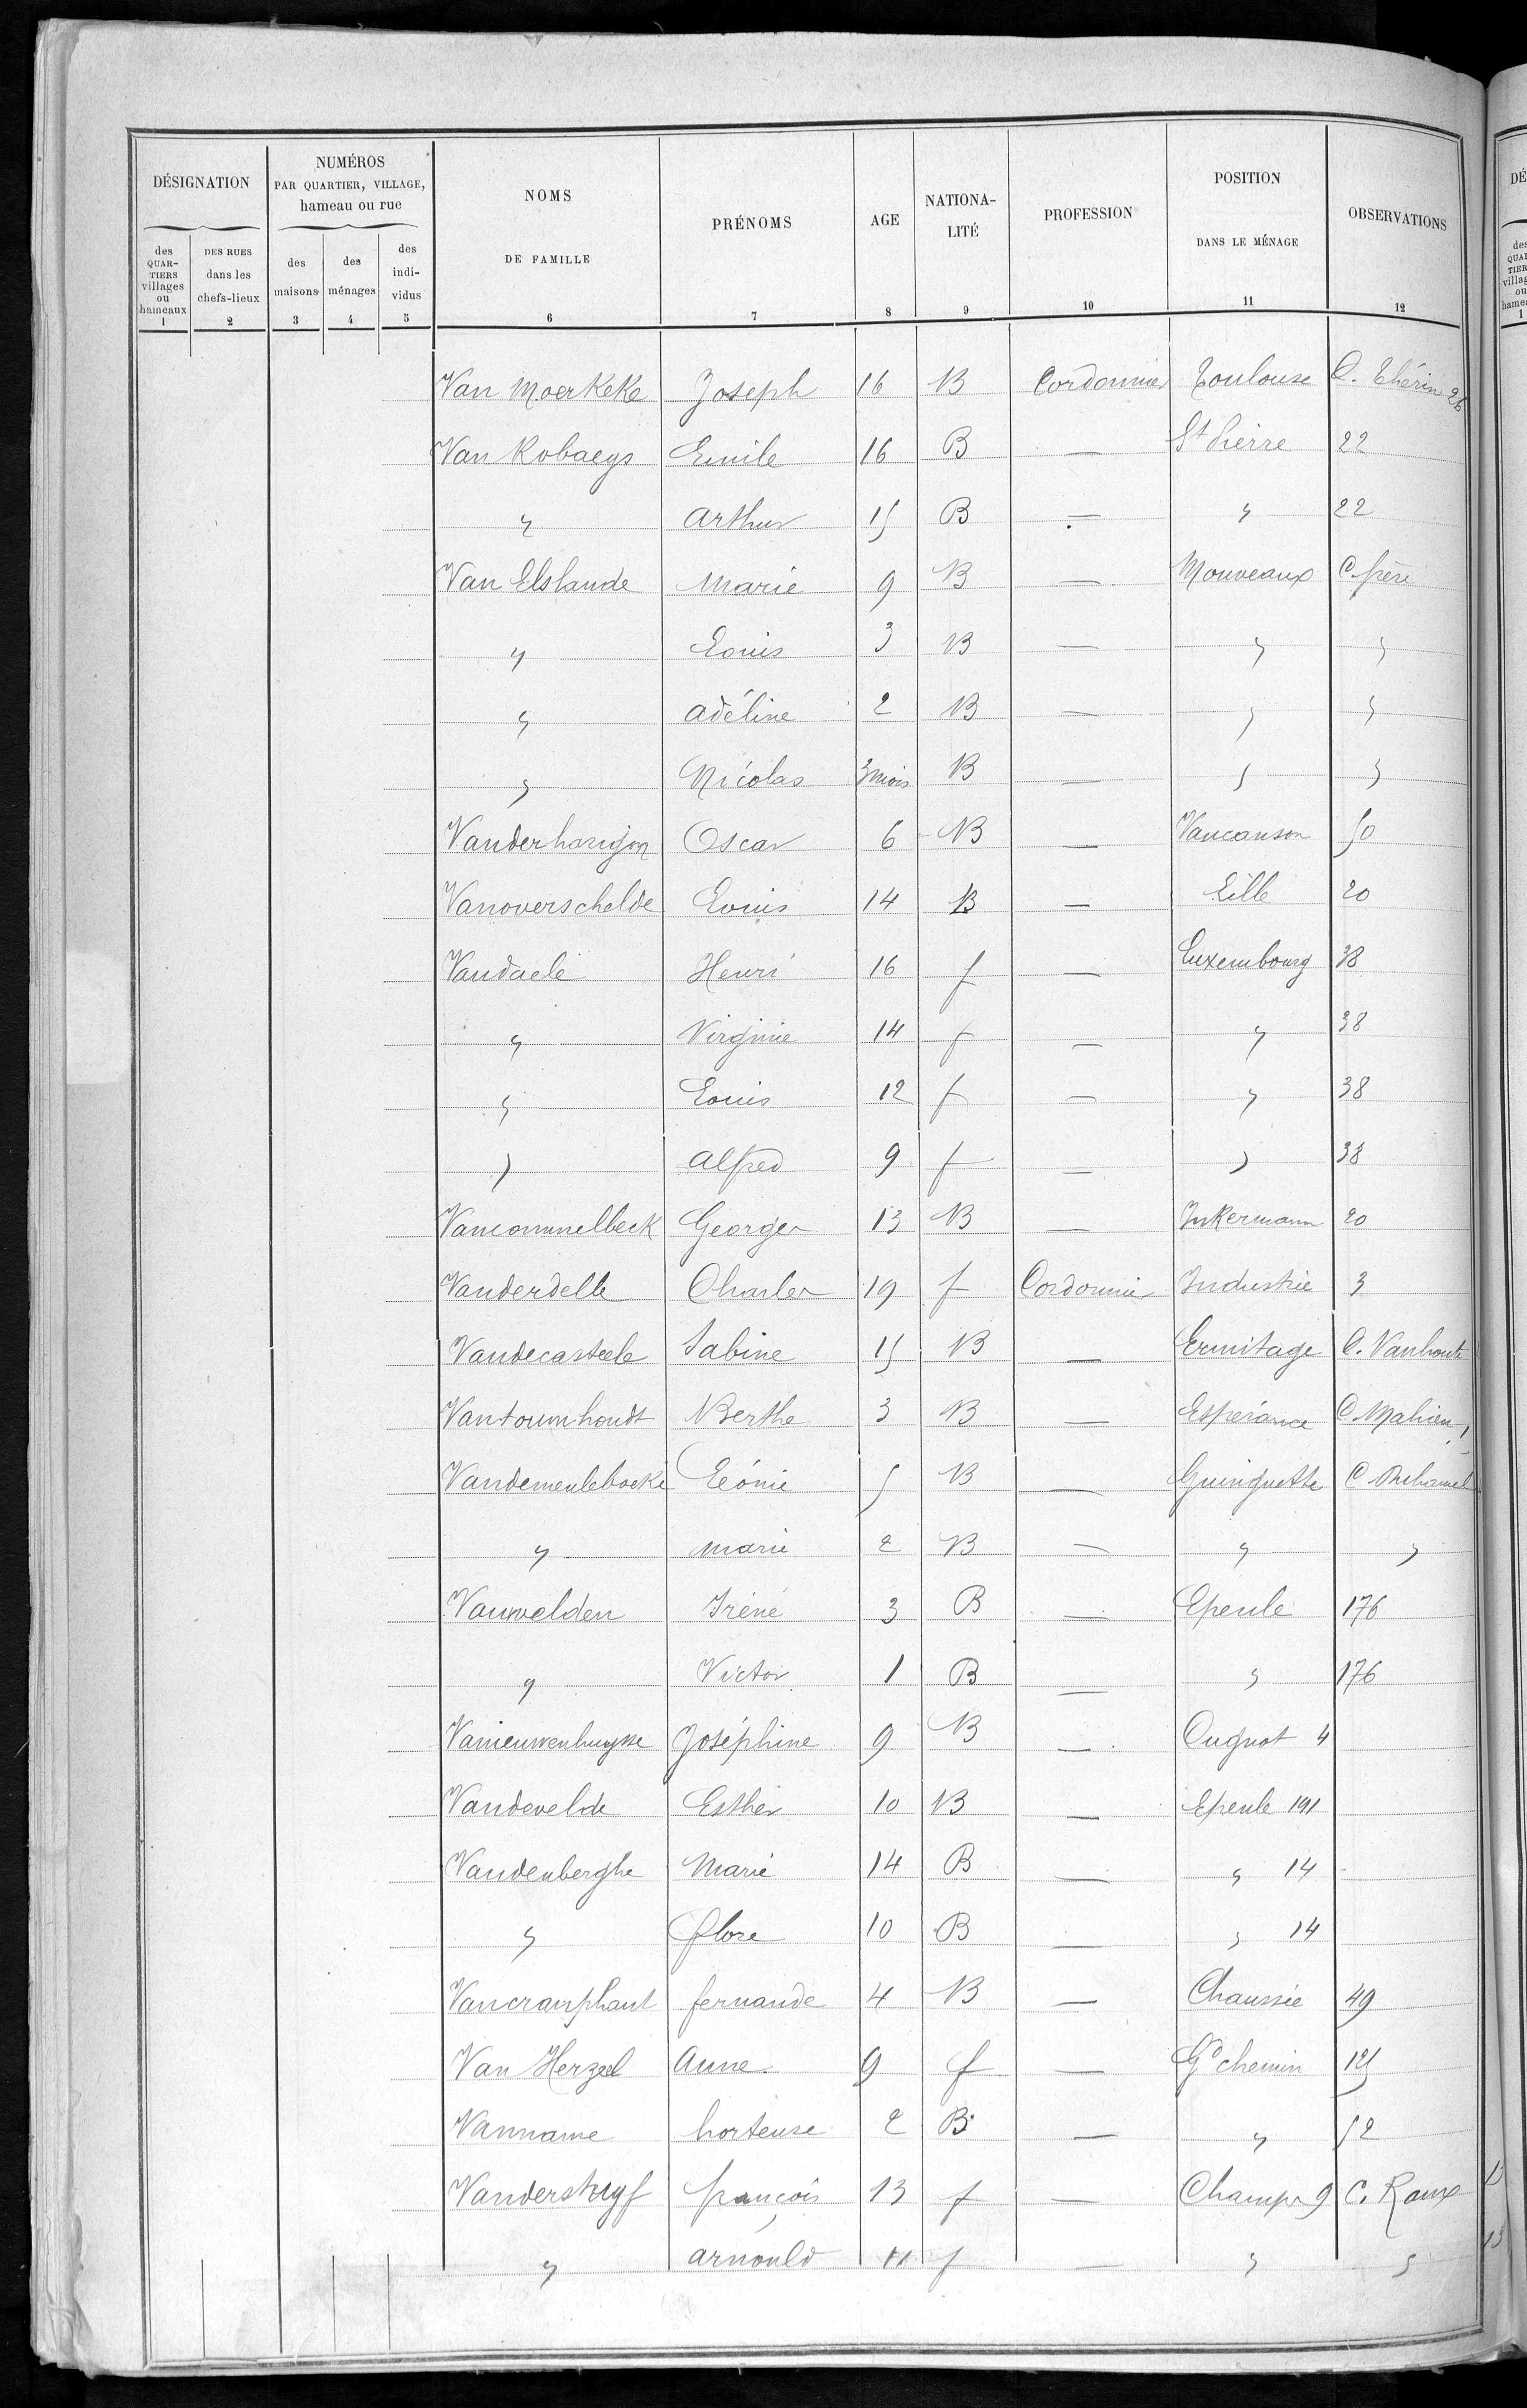 DÉSIGNATION
NUMÉROS
PAR QUARTIER, VILLAGE,
hameau ou rue
NOMS
DE FAMILLE
PRÉNOMS
AGE
NATIONA-
LITÉ
PROFESSION
POSITION
DANS LE MÉNAGE
OBSERVATIONS
des
QUAR-
TIERS
villages
ou
hameaux
DES RUES
dans les
chefs-lieux
des
maisons
des
ménages
des
indi-
vidus
1 2 3 4 5 6 7 8 9 10 11 12
Van Moerkeke Joseph 16 B Cordonnier Toulouse C. Thérin 26
Van Robaeys Emile 16 B — St Pierre 22
" Arthur 15 B — " 22
Van Elslande Marie 9 B — Mouveaux C frère
" Louis 3 B — " "
" Adéline 2 B — " "
" Nicolas 3 mois B — " "
Oscar 6 B — Vaucanson 50
Vanoverschelde Louis 14 B — Lille 20
Vandaele Henri 16 f — Luxembourg 38
" Virginie 14 f — " 38
" Louis 12 f — " 38
" Alfred 9 f — " 38
Vancommelbeck Georges 13 B — Inkermann 20
Vanderdelle Charles 19 f Cordonnier Industrie 3
Vandecasteele Sabine 15 B — Ermitage C. Vanhoute
Vantournhoudt Berthe 3 B — Espérance C Mahieu 1
Vandemeulebocke Léonie 5 B — Guinguette C Duhamel
" Marie 2 B — " "
Vanwelden Iréné 3 B — Epeule 176
" Victor 1 B — " 176
Vanieuwenhuysse Joséphine 9 B — Cugnot 4
Vandevelde Esther 10 B — Epeule 191
Vandenberghe Marie 14 B — " 14
" flore 10 B — " 14
Vancramphaut fernande 4 B — Chaussée 49
Van Herzeel Anne 9 f — Gd chemin 125
Vanname hortense 2 B — " 52
Vanderstuyf françois 13 f — Champs 9 C. Roux
" Arnould 11 f — " "